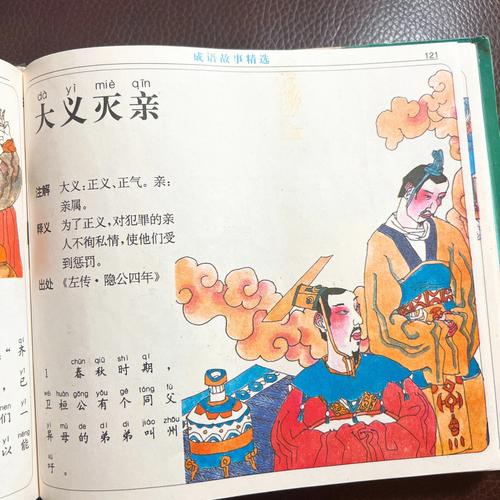 成语故事精选
121
dà yì miè qīn
大义灭亲
注解 大义:正义、正气。亲:
亲属。
释义 为了正义,对犯罪的亲
人不徇私情,使他们受
到惩罚。
出处 《左传·隐公四年》
chūn qiū shí qī
1 春秋时期,
wèi huán gōng yǒu gè tóng fù
卫桓公有个同父
yì mǔ de dì di jiào zhōu
异母的弟弟叫州
吁。
qí
“齐
yǐ
,已
men yī
们一
yǐ néng
以能